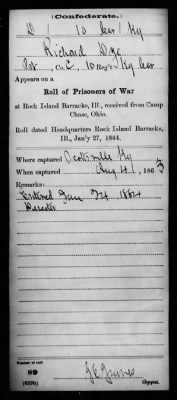 (Confederate.)
D 10 Cav Ky
Richard
Pvt, Co. D, 10 Reg't Ky Cav
Appears on a
Roll of Prisoners of War
at Rock Island Barracks, Ill., received from Camp
Chase, Ohio.
Roll dated Headquarters Rock Island Barracks,
Ill., Jan'y 27, 1864.
Where captured Scottsville Ky
When captured Aug 4, 1863
Remarks:
Entered Jan 24 1864
Deserter
Number of roll
89
(639b)
J E
Copyist.